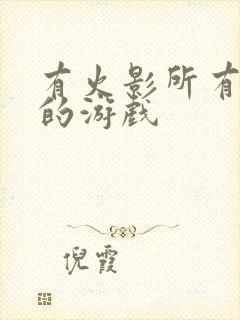 有火影所有
的游戏
倪霞